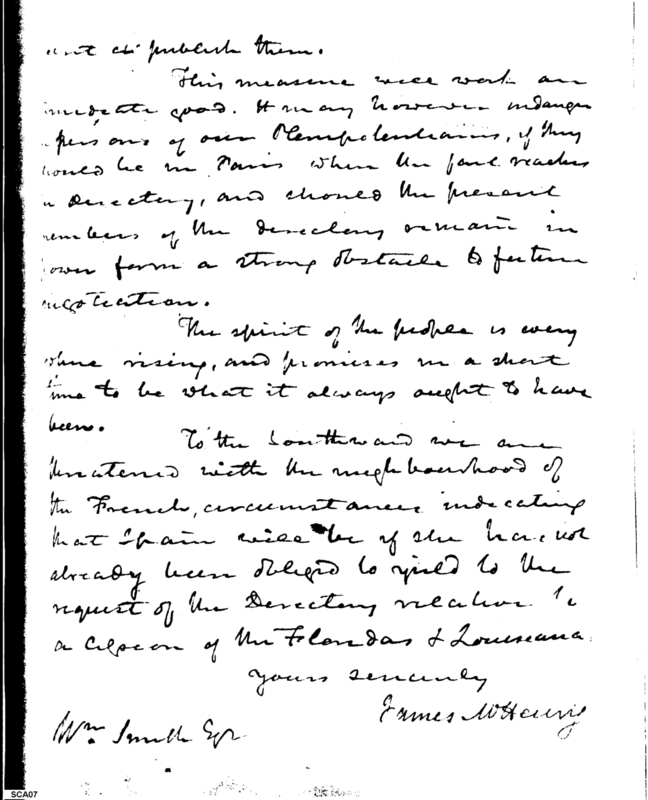 publish them.
This measure will work an
imediate good. It may however indanger
persons of our Plenipotentiaries, if they
would be in Paris when the fact reaches
Directory, and should the present
members of the directory remain in
power form a strong obstacle to future
negotiation.
The spirit of the people is every
where rising, and promises in a short
time to be what it always ought to have
been.
To the Southward we are
threatened with the neighbourhood of
the French, circumstances indicating
that Spain will be if she has not
already been obliged to yield to the
request of the Directory relative to
a cession of the Floridas & Louiseana.
yours sincerely
James McHenry
Wm. Smith Esqr.
SCA07